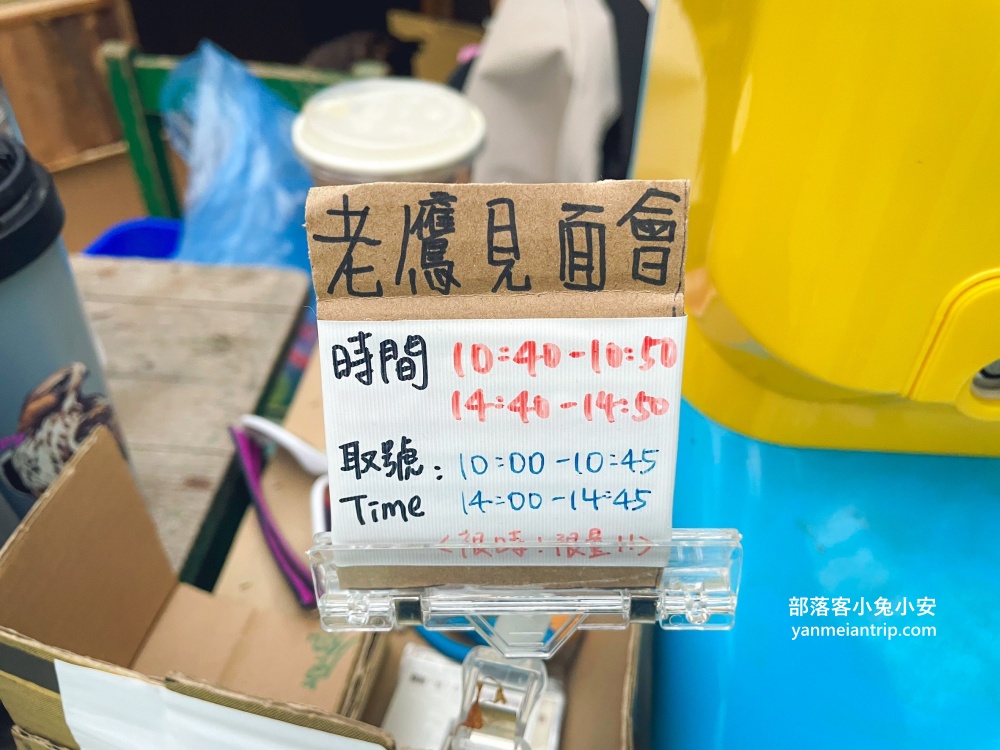 老鷹見面會
時間 10:40-10:50
14:40-14:50
取號: 10:00-10:45
Time 14:00-14:45
<限時!限量!!>
部落客小兔小安
yanmeiantrip.com